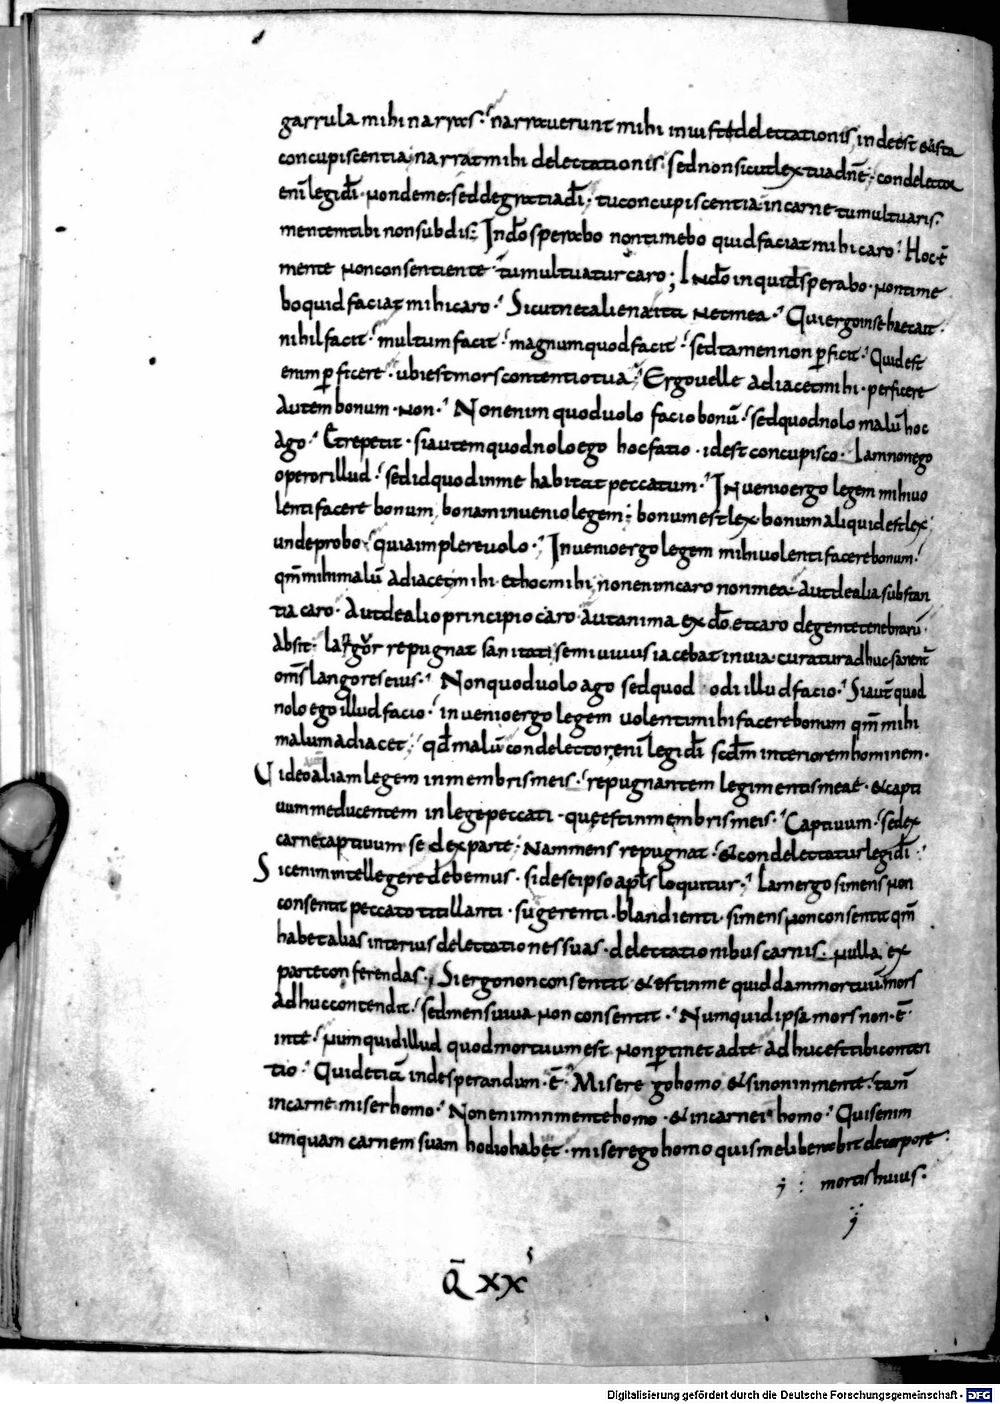 garrula mihi narras · narraverunt mihi iniusti delectationis, inde est & ista
concupiscentia narrat mihi delectationis · sed non sicut lex tua dnē · condelector
enī legi dī · non de me · sed de gratia dī · tu concupiscentia in carne tumultuaris ·
mentem tibi non subdis · In dō sperabo non timebo quid faciat mihi caro · Hoc ē
mente non consentiente tumultuatur caro ; In dō inquid sperabo · non time
bo quid faciat mihi caro · Sicut nec aliena ita nec mea · Qui ergo in se haec agit ·
nihil facit · multum facit · magnum quod facit · sed tamen non pficit · Quid est
enim pficere · ubi est mors contentio tua · Ergo velle adiacet mihi · perficere
autem bonum · non · Non enim quod volo facio bonū · sed quod nolo malū hoc
ago · Et repetit · si autem quod nolo ego hoc fatio · id est concupisco · Iam non ego
operor illud · sed id quod in me habitat peccatum · Invenio ergo legem mihi vo
lenti facere bonum, bonam invenio legem · bonum est lex · bonum aliquid est lex ·
unde probo · quia implere volo · Invenio ergo legem mihi volenti facere bonum ·
qm̄ mihi malū adiacet mihi · et hoc mihi, non enim caro non mea · Aut de alia substan
tia caro · Aut de alio principio caro · aut anima ex dō et caro de gente tenebrarū ·
Absit · langor repugnat sanitati semivivus iacebat in via · curatur adhuc sanent
om̄s langores eius · Non quod volo ago sed quod odi illud facio · Si autē quod
nolo ego illud facio · invenio ergo legem volenti mihi facere bonum qm̄ mihi
malum adiacet · qd̄ malū condelector, enī legi dī scdm interiorem hominem ·
Video aliam legem in membris meis · repugnantem legi mentis meae · & capti
vum me ducentem in lege peccati · que est in membris meis · Captivum · sed ex
carne captivum · sed ex parte · Nam mens repugnat · & condelectatur legi dī ·
Sic enim intellegere debemus · si de se ipso apls loquitur · Iam ergo si mens non
consentit peccato titillanti · sugerenti · blandienti · si mens non consentit qm̄
habet alias interius delectationes suas · delectationibus carnis · nulla ex
parte conferendas · Si ergo non consentit · & est in me quiddam mortuū · mors
adhuc contendit · sed mens viva non consentit · Numquid ipsa mors non · ē ·
in te · numquid illud quod mortuum est non ptinet ad te adhuc est tibi conten
tio · Quid etiā inde sperandum · ē · Miser ego homo & si non in mente · tam̄
in carne miser homo · Non enim in mente homo · & in carne n homo · Quis enim
umquam carnem suam hodio habet · miser ego homo quis me liberabit de corpore
mortis huius ·
Q XX
Digitalisierung gefördert durch die Deutsche Forschungsgemeinschaft · DFG